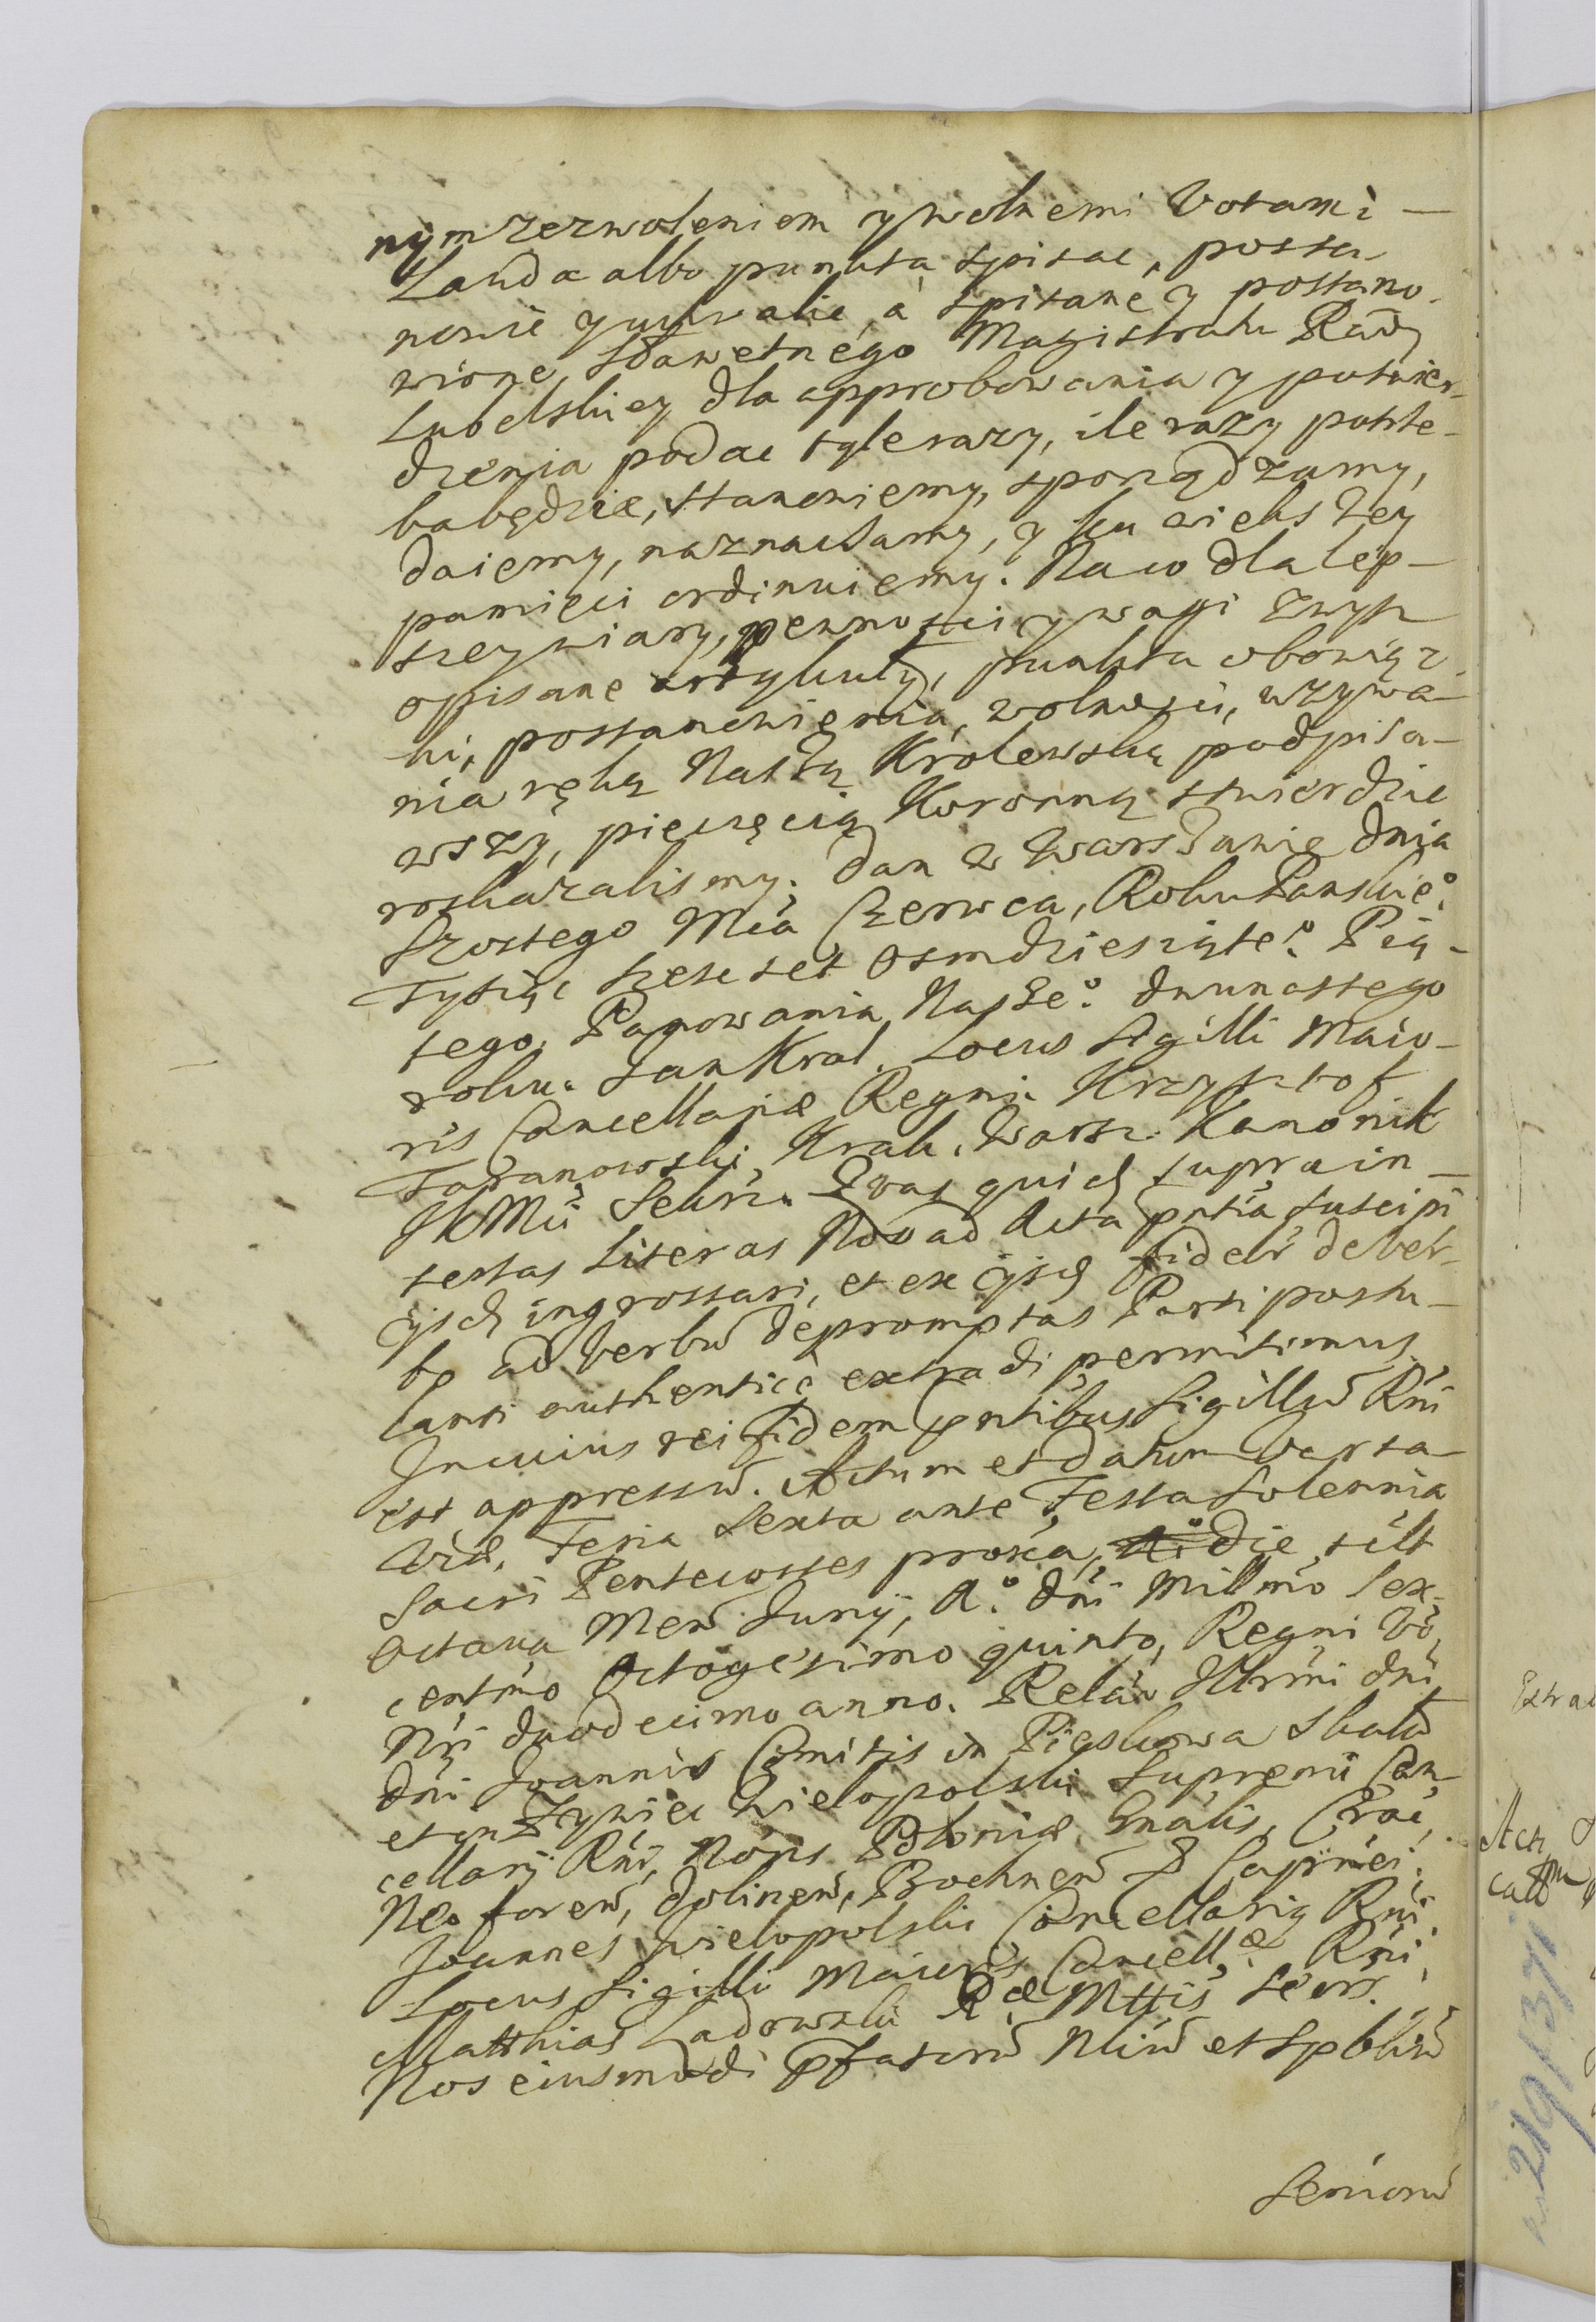 nym zezwoleniem y wolnemi Votami —
Lauda albo punkta spisac, posta-
nowic y uchwalic, à spisane y postano-
wione, Sławetnego Magistratu Rady
Lubelskiey dla approbowania y potwier-
dzenia podac tyle razy, ile razy potrze-
ba będzie, stanowiemy, sporządzamy,
daiemy, naznaczamy, y ku większey
pamięci ordinuiemy. Na co dla lep-
szey wiary, pewnosci y wagi zwysz
opisane artykuły, punkta obowiąz-
ki, postanowienia, wolnosci, uzywa-
nia ręką Naszą Krolewską podpisa-
wszy, pieczęcią Koronną stwierdzic
roskazalismy. Dan w Warszawie dnia
Szostego Mca Czerwca, Roku Panskie°.
Tysiąc szescset Osmdziesiąte°. Pią-
tego, Panowania Nasze°. dwunastego
roku. Jan Krol. Locus Sigilli Maio-
ris Cancellariæ Regni. Krzysztof
Taranowski, Krak. Warsz. Kanonik
JKMci Sekrz. Quas quid supra in-
sertas Literas Nos ad Acta pntia suscipi
ijsq ingrossari, et ex ijsq fideli debet
bo ad verbū depromptas Parti postu-
lanti authenticè extradi permisimus.
In cuius rei fidem pntibus Sigillū Rni
est appressū. Actum et datum Varsa-
viæ, Feria Sexta ante Festa Solennia
Sacri Pentecostes proxa, die sclt
octava Men Junij, A°. Dni Millmo sex-
centmo Octogesimo quinto, Regni Vo
Nri duodecimo anno. Relao Illrmi dni
dni Joannis Comitis in Pieskowa Skala
et in Zywiec Wielopolski Supremi Can-
cellarij Rni, Nonis Poloniæ Gnalis, Crac,
Neoforen, Dolinen, Bochnen & Capnei.
Joannes Wielopolski Cancellariq Rni.
Locus Sigilli Maioris Cancell.æ Rni.
Matthias Ladowski R.æ Mttis Secrs.
Nos eiusmodi pfatorū Nliū et Spbliū
Seniorū
Extra
Act